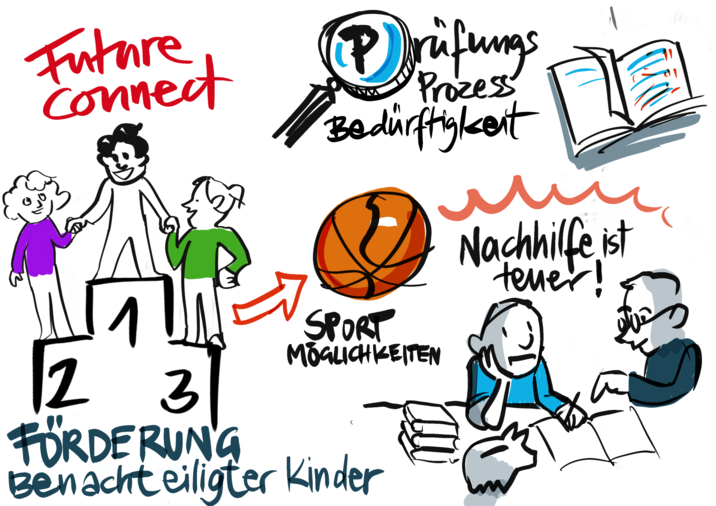 Future
connect
Prüfungs
Prozess
Bedürftigkeit
1
2
3
FÖRDERUNG
Benachteiligter Kinder
SPORT
MÖGLICHKEITEN
Nachhilfe ist
teuer!